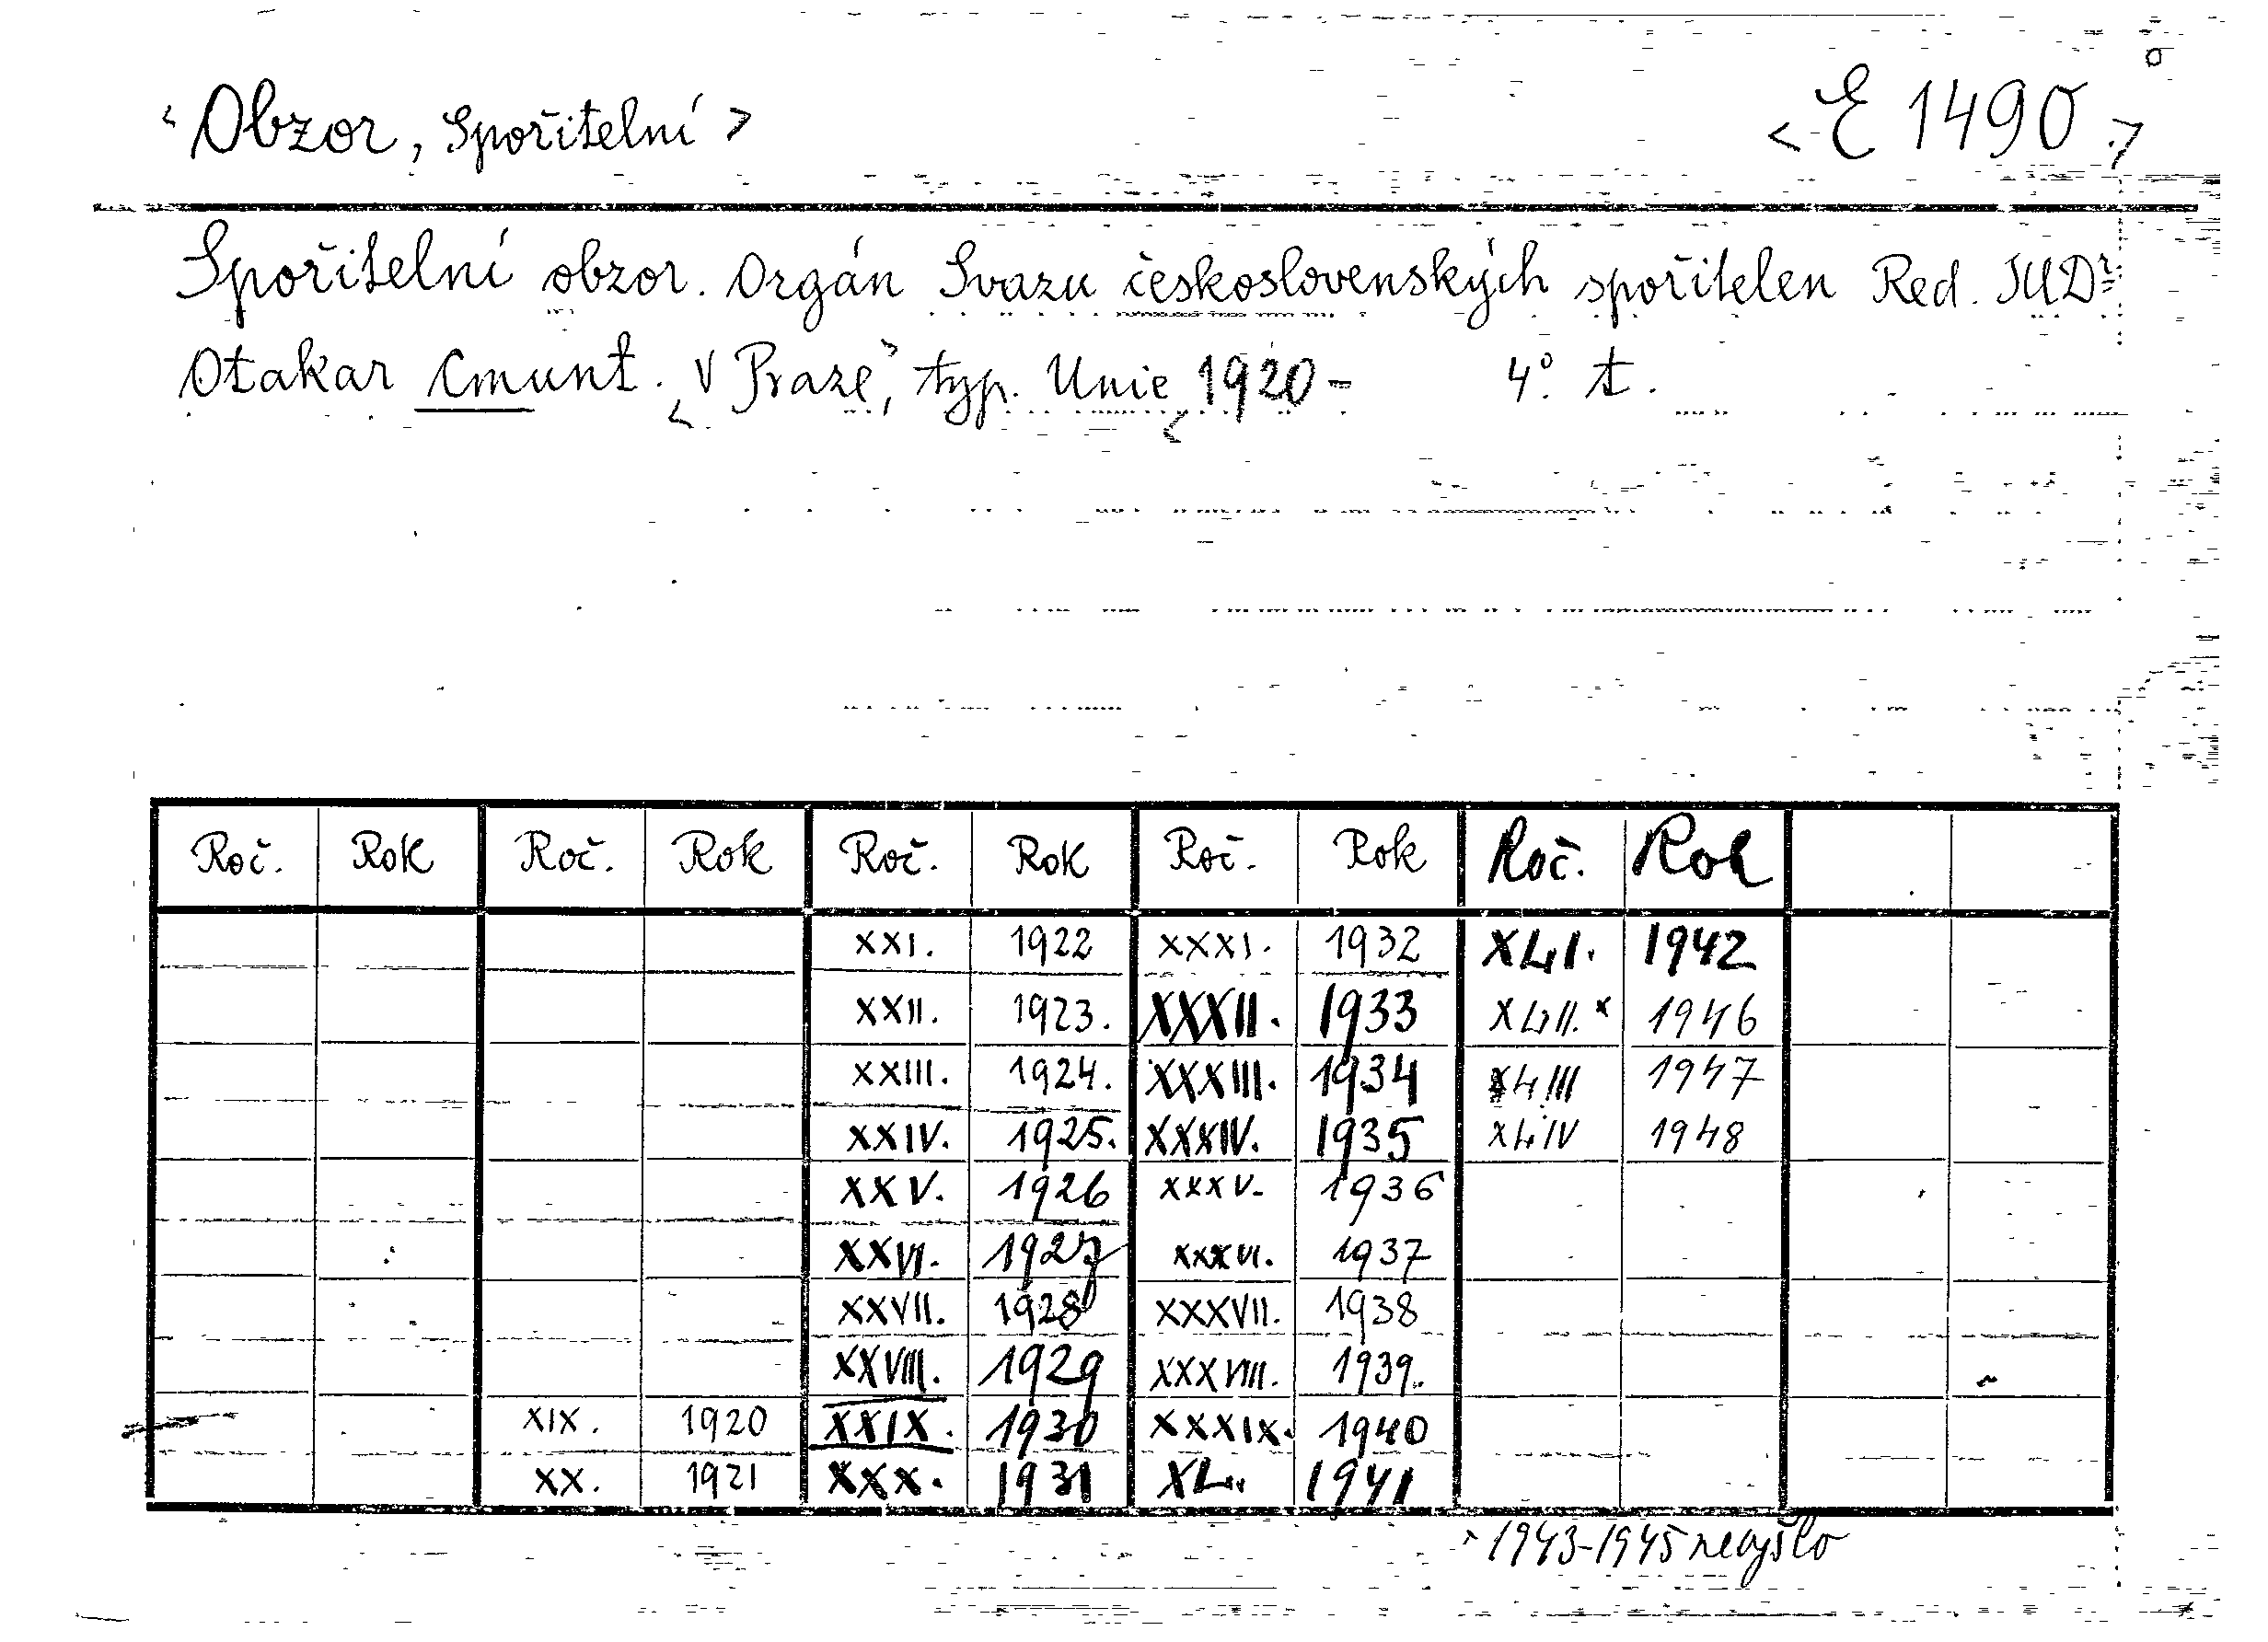 ‹Obzor, Spořitelní› ‹E 1490›
Spořitelní obzor. Orgán Svazu československých spořitelen Red. JUDr
Otakar Cmunt. ‹V Praze›, typ. Unie ‹1920- 4° t.
Roč. Rok Roč. Rok Roč. Rok Roč. Rok Roč. Rok
XXI. 1922 XXXI. 1932 XLI. 1942
XXII. 1923. XXXII. 1933 XLII.x 1946
XXIII. 1924. XXXIII. 1934 XLIII 1947
XXIV. 1925. XXXIV. 1935 XLIV 1948
XXV. 1926 XXXV. 1936
XXVI. 1927 XXXVI. 1937
XXVII. 1928 XXXVII. 1938
XXVIII. 1929 XXXVIII. 1939.
XIX. 1920 XXIX. 1930 XXXIX. 1940
XX. 1921 XXX. 1931 XL. 1941
x 1943-1945 nevyšlo